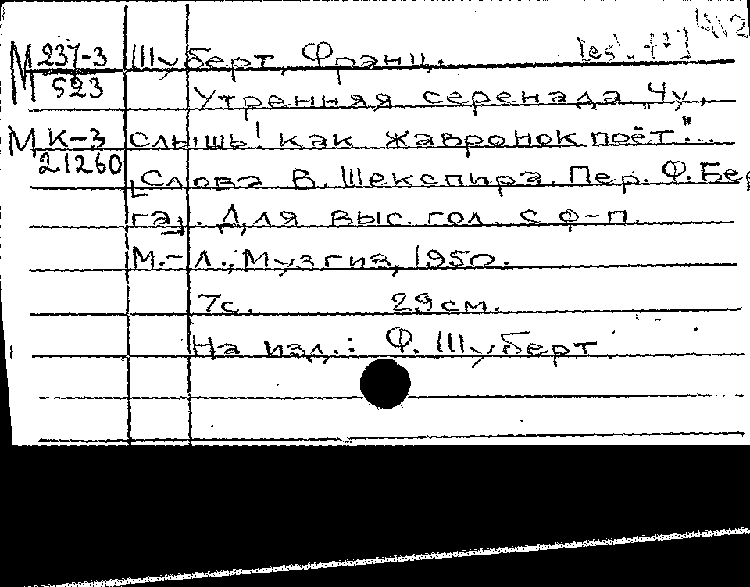 М 237-3 Шуберт, Франц.
523 Утренняя серенада „Чу,
М К-3 слышь! как жавронок поёт"...
21260 [Слова В. Шекспира. Пер. Ф. Бер
га]. Для выс. гол. с ф-п.
М.-Л., Музгиз, 1950.
7с. 29см.
На изд.: Ф. Шуберт